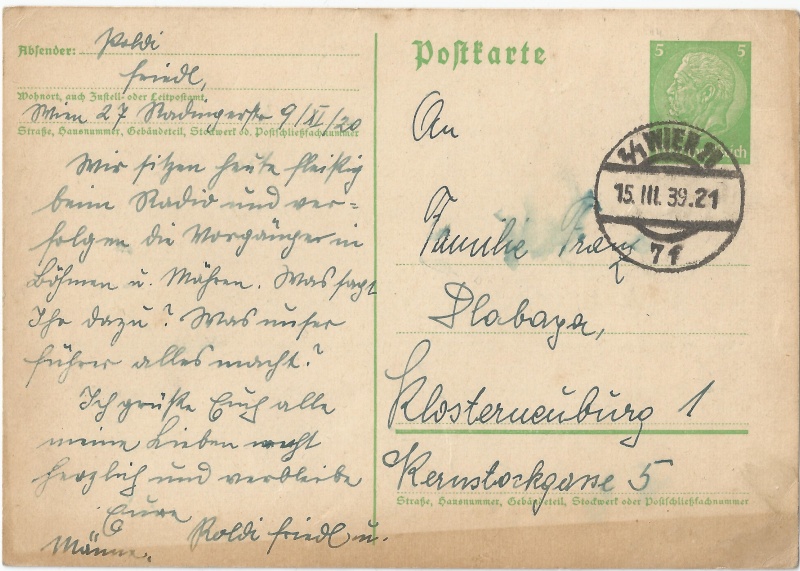 Absender: Poldi
Friedl,
Wohnort, auch Zustell- oder Leitpostamt
Wien 27 Radingerstr 9/II/20
Straße, Hausnummer, Gebäudeteil, Stockwerk od. Postschließfachnummer
Wir sitzen heute fleißig
beim Radio und ver=
folgen die Vorgänge in
Böhmen u. Mähren. Was sagt
Ihr dazu? Was unser
Führer alles macht?
Ich grüße Euch alle
meine Lieben recht
herzlich und verbleibe
Eure
Poldi Friedl u.
Männe.
Postkarte
5 5
ich
1/1 WIEN
15. III. 39.21
7f
An
Familie Franz
Dlabaya,
Klosterneuburg 1
Kernstockgasse 5
Straße, Hausnummer, Gebäudeteil, Stockwerk oder Postschließfachnummer